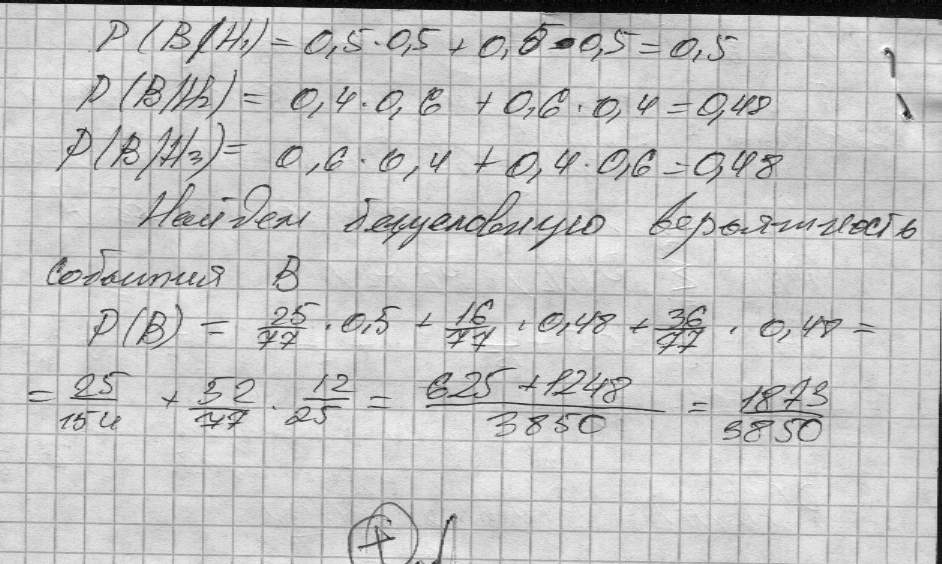 P(B/H₁) = 0,5·0,5 + 0,5·0,5 = 0,5
P(B/H₂) = 0,4·0,6 + 0,6·0,4 = 0,48
P(B/H₃) = 0,6·0,4 + 0,4·0,6 = 0,48
Найдем безусловную вероятность
события B
P(B) = 25/77 · 0,5 + 16/77 · 0,48 + 36/77 · 0,48 =
= 25/154 + 52/77 · 12/25 = 625+1248/3850 = 1873/3850
+